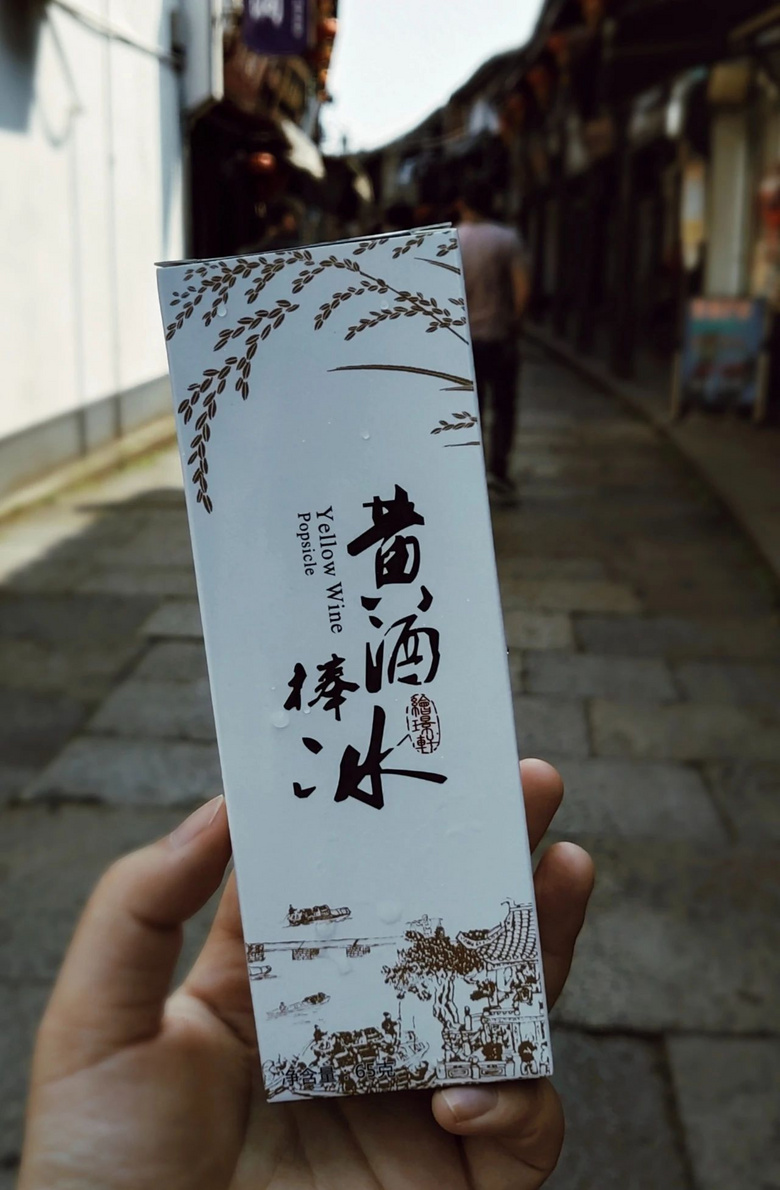 黄酒
棒冰
繪璟軒
Yellow Wine
Popsicle
净含量：65克